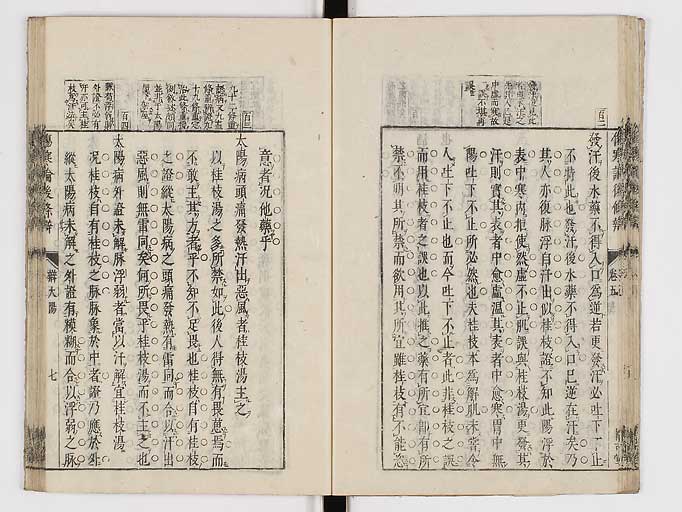 百二
發汗後水藥不得入口為逆若更發汗必吐下不止
不特此也發汗後水藥不得入口已逆在汗矣乃
其人亦復脈浮自汗出似桂枝證不知此陽浮於
表中寒內拒使然虛不止肌誤與桂枝湯更發其
汗則實其表者中愈虛溫其表者中愈寒胃中無
陽吐下不止所必然也夫桂枝本為解肌未嘗令
人吐下不止也而今吐下不止者此非桂枝之誤
而用桂枝者之誤也以此推之藥有所宜即有所
禁不明其所禁而欲用其所宜雖桂枝有不能恣
意者況他藥乎
百三
太陽病頭痛發熱汗出惡風者桂枝湯主之
以桂枝湯之多所禁如此後人得無有畏意焉而
不敢主其方者乎不知不足畏也桂枝自有桂枝
之證縱太陽病之頭痛發熱有雷同而合以汗出
惡風則無雷同矣何所畏乎桂枝湯而不主之也
百四
太陽病外證未解脈浮弱者當以汗解宜桂枝湯
況桂枝自有桂枝之脈脈稟於中者證乃應於外
縱太陽病未解之外證有糢糊而合以浮弱之脈
傷寒論後條辨
辨太陽
七
卷五